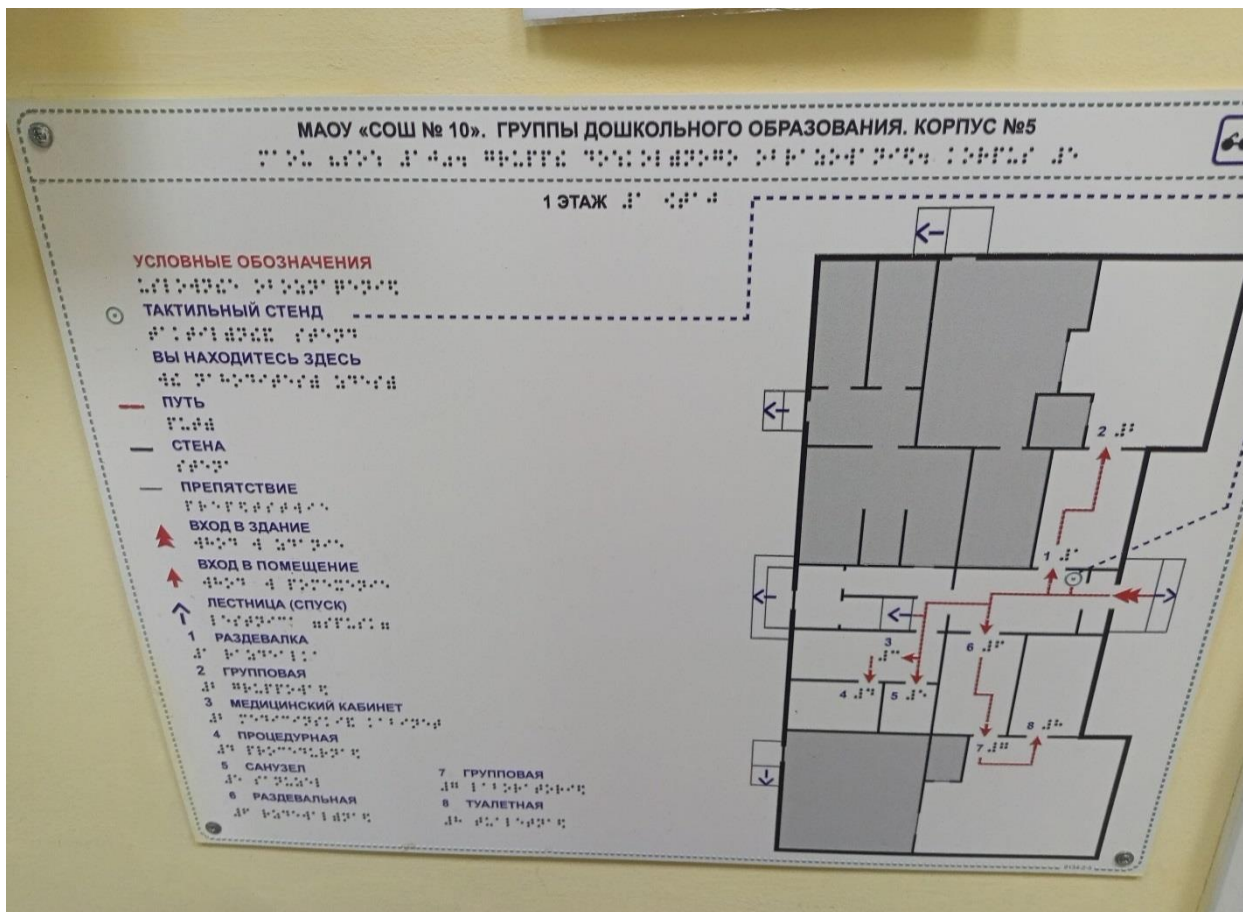 МАОУ «СОШ № 10». ГРУППЫ ДОШКОЛЬНОГО ОБРАЗОВАНИЯ. КОРПУС №5
1 ЭТАЖ
УСЛОВНЫЕ ОБОЗНАЧЕНИЯ
ТАКТИЛЬНЫЙ СТЕНД
ВЫ НАХОДИТЕСЬ ЗДЕСЬ
ПУТЬ
СТЕНА
ПРЕПЯТСТВИЕ
ВХОД В ЗДАНИЕ
ВХОД В ПОМЕЩЕНИЕ
ЛЕСТНИЦА (СПУСК)
1 РАЗДЕВАЛКА
2 ГРУППОВАЯ
3 МЕДИЦИНСКИЙ КАБИНЕТ
4 ПРОЦЕДУРНАЯ
5 САНУЗЕЛ
6 РАЗДЕВАЛЬНАЯ
7 ГРУППОВАЯ
8 ТУАЛЕТНАЯ
2
1
3
6
4 5
8
7